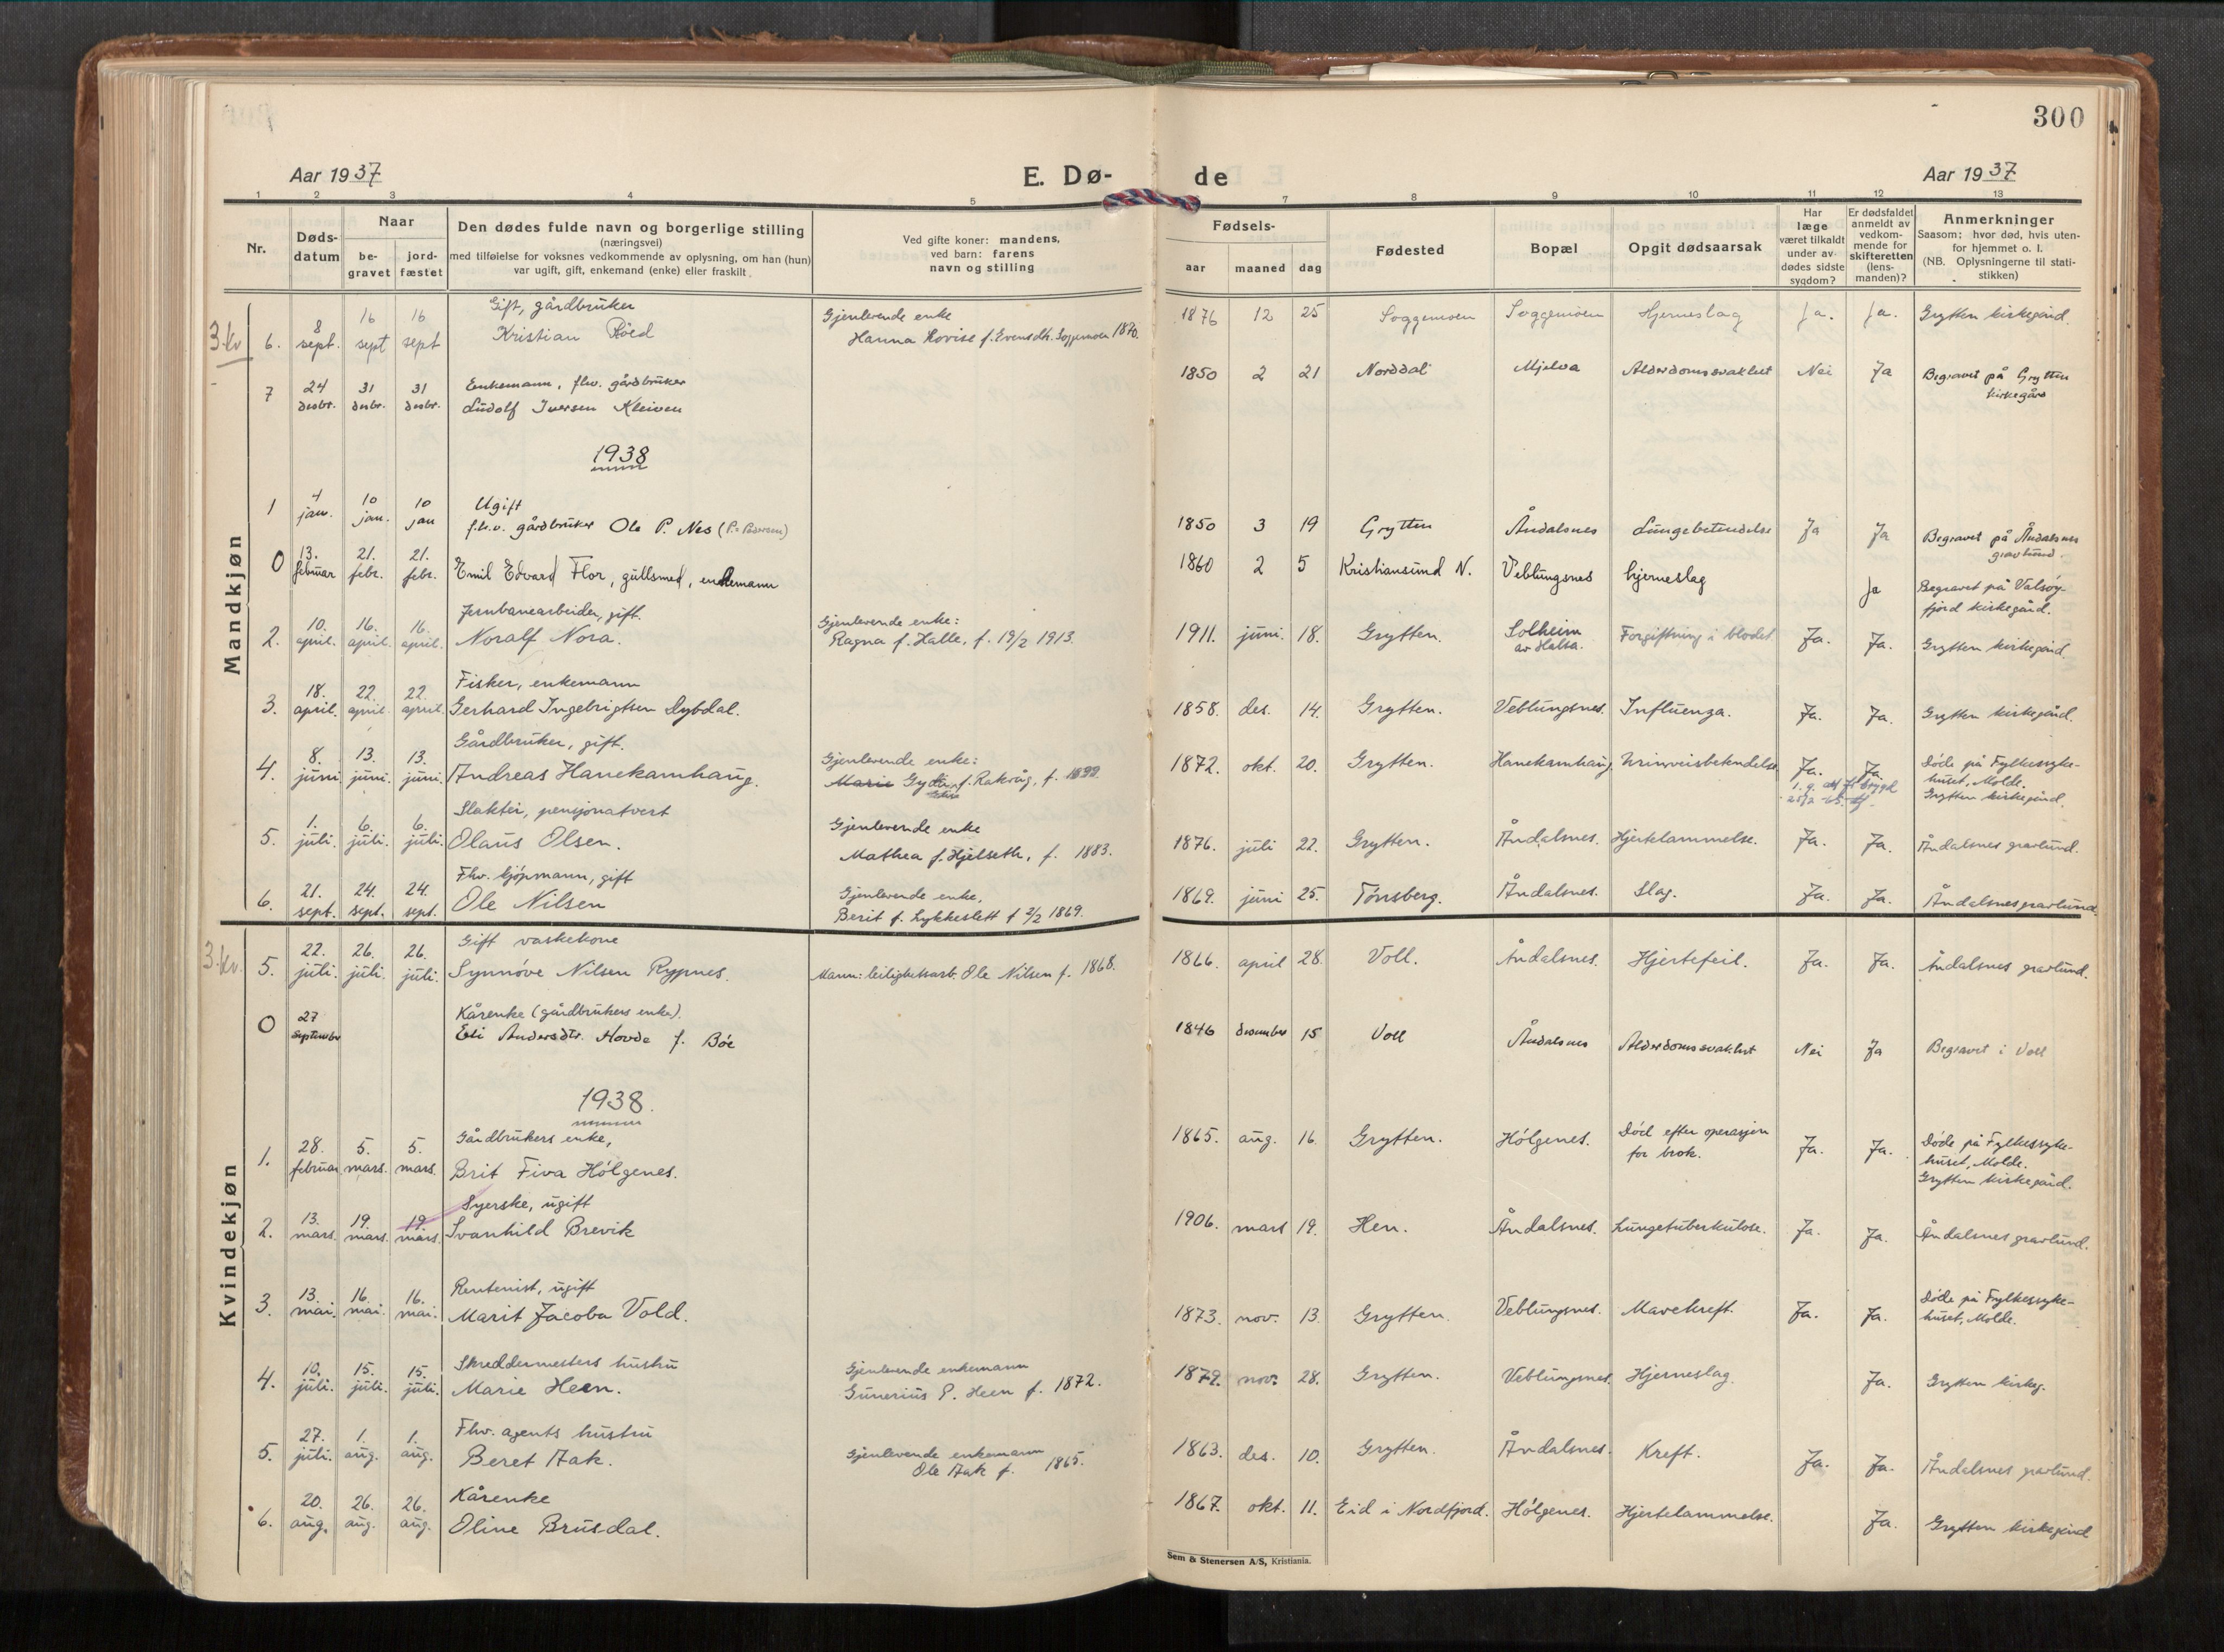 300
Aar 1937
E. Dø-
de
Aar 1937
1 2 3 4 5 7 8 9 10 11 12 13
Nr.
Døds-
datum
Naar
be-
gravet
jord-
fæstet
Den dødes fulde navn og borgerlige stilling
(næringsvei)
med tilføielse for voksnes vedkommende av oplysning, om han (hun)
var ugift, gift, enkemand (enke) eller fraskilt
Ved gifte koner: mandens,
ved barn: farens
navn og stilling
Fødsels-
aar maaned dag
Fødested
Bopæl
Opgit dødsaarsak
Har
læge
været tilkaldt
under av-
dødes sidste
sygdom?
Er dødsfaldet
anmeldt av
vedkom-
mende for
skifteretten
(lens-
manden)?
Anmerkninger
Saasom: hvor død, hvis uten-
for hjemmet o. l.
(NB. Oplysningerne til stati-
stikken)
Mandkjøn
3. kv
Gift, gårdbruker
6. 8 sept. 16 sept 16 sept Kristian Røed
Gjenlevende enke
Hanna Lovise f. Evensdtr. Soggemoen 1870.
1876 12 25 Soggemoen Soggemoen Hjerneslag Ja. Ja. Grytten kirkegård.
Enkemann, fhv. gårdbruker
7 24 desbr. 31 desbr. 31 desbr. Ludolf Iversen Kleiven
1850 2 21 Norddal Mjelva Alderdomssvakhet Nei Ja Begravet på Grytten
kirkegård
1938
Ugift
1 4 jan. 10 jan. 10 jan f.h.v. gårdbruker Ole P. Nes (P. = Pedersen)
1850 3 19 Grytten Åndalsnes Lungebetendelse Ja Ja Begravet på Åndalsnes
gravlund.
0 13. februar 21. febr. 21. febr. Emil Edvard Flor, gullsmed, enkemann
1860 2 5 Kristiansund N. Veblungsnes hjerneslag Ja Begravet på Valsøy-
fjord kirkegård.
Jernbanearbeider, gift.
2. 10. april. 16. april. 16. april. Noralf Nora.
Gjenlevende enke:
Ragna f. Halle, f. 19/2 1913.
1911. juni. 18. Grytten. Solheim
av Halsa. Forgiftning i blodet Ja. Ja. Grytten kirkegård.
Fisker, enkemann
3. 18. april. 22. april. 22. april. Gerhard Ingebrigtsen Dybdal.
1858. des. 14. Grytten. Veblungsnes. Influenza. Ja. Ja. Grytten kirkegård.
Gårdbruker, gift.
4. 8. juni 13. juni. 13. juni. Andreas Hanekamhaug.
Gjenlevende enke:
Marie f. Rakvåg, f.
1872. okt. 20. Grytten. Hanekamhaug Urinveisbetendelse Ja. Ja. Døde på Fylkessyke-
huset, Molde.
Grytten kirkegård.
Slakter, pensjonatvert
5. 1. juli. 6. juli. 6. juli. Olaus Olsen.
Gjenlevende enke
Mathea f. Hjelseth, f. 1883.
1876. juli 22. Grytten. Åndalsnes. Hjertelammelse. Ja. Ja. Åndalsnes gravlund.
Fhv. kjøpmann, gift
6. 21. sept. 24. sept. 24. sept. Ole Nilsen
Gjenlevende enke,
Berit f. Lykkeslett f 2/2 1869.
1869. juni 25. Tønsberg. Åndalsnes. Slag. Ja. Ja. Åndalsnes gravlund.
Kvindekjøn
3. kv.
Gift vaskekone
5. 22. juli. 26. juli. 26. juli. Synnøve Nilsen Rypnes.
Mann: leilighetsarb. Ole Nilsen f. 1868.
1866. april 28. Voll. Åndalsnes. Hjertefeil. Ja. Ja. Åndalsnes gravlund.
Kårenke (gårdbrukers enke).
0 27 september Eli Andersdtr. Hovde f. Bøe
1846 desember 15 Voll Åndalsnes Alderdomssvakhet Nei Ja Begravet i Voll
1938.
Gårdbrukers enke,
1. 28. februar 5. mars. 5. mars. Brit Fiva Hólgenes.
1865. aug. 16. Grytten. Hólgenes. Død efter operasjon
for brok. Ja. Ja. Døde på Fylkessyke-
huset, Molde.
Grytten kirkegård.
Syerske, ugift
2. 13. mars. 19. mars. 19. mars. Svanhild Brevik
1906. mars 19. Hen. Åndalsnes. Lungetuberkulose. Ja. Ja. Åndalsnes gravlund.
Rentenist, ugift
3. 13. mai. 16. mai. 16. mai. Marit Jacoba Vold.
1873. nov. 13. Grytten. Veblungsnes. Mavekreft. Ja. Ja. Døde på Fylkessyke-
huset, Molde.
Skreddermesters hustru
4. 10. juli. 15. juli. 15. juli. Marie Heen.
Gjenlevende enkemann
Gunerius P. Heen f. 1872.
1879. nov. 28. Grytten. Veblungsnes. Hjerneslag. Ja. Grytten kirkeg.
Fhv. agents hustru
5. 27. juli. 1. aug. 1. aug. Beret Aak.
Gjenlevende enkemann
Ole Aak f. 1865.
1863. des. 10. Grytten. Åndalsnes. Kreft. Ja. Ja. Åndalsnes gravlund.
Kårenke
6. 20. aug. 26. aug. 26. aug. Oline Brusdal.
1867. okt. 11. Eid i Nordfjord. Hólgenes. Hjertelammelse. Ja. Grytten kirkegård
Sem & Stenersen A/S, Kristiania.